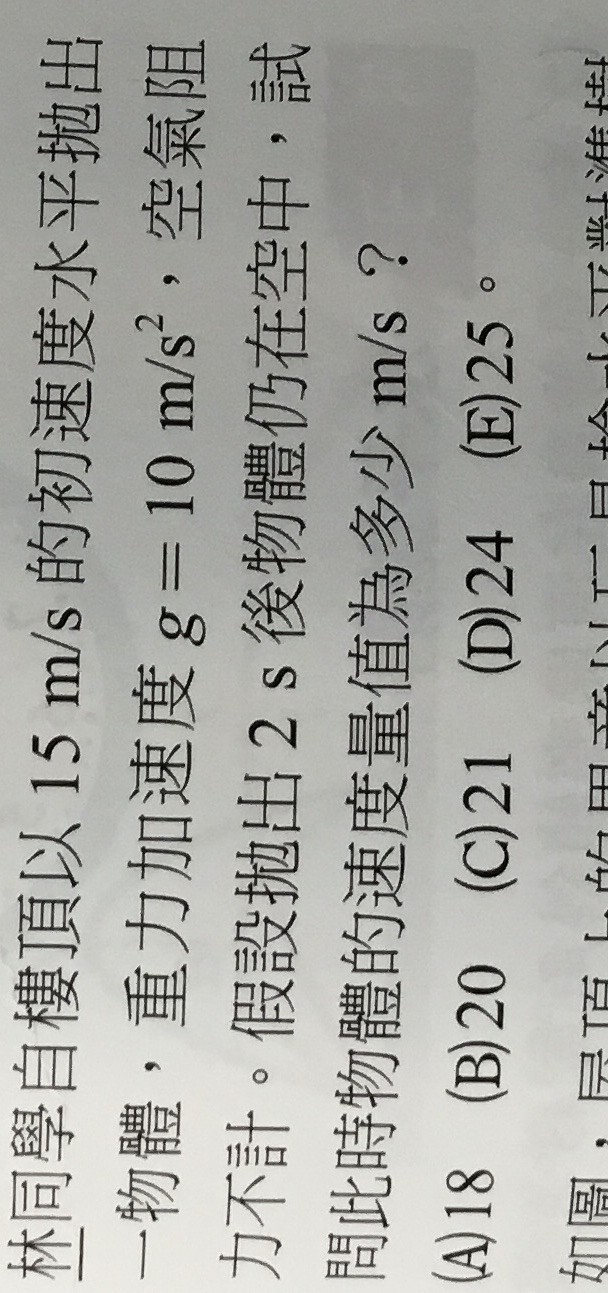 林同學自樓頂以 15 m/s 的初速度水平拋出
一物體，重力加速度 g = 10 m/s²，空氣阻
力不計。假設拋出 2 s 後物體仍在空中，試
問此時物體的速度量值為多少 m/s？
(A)18 (B)20 (C)21 (D)24 (E)25。
如圖，屋頂上的男童以玩具槍水平對準樹